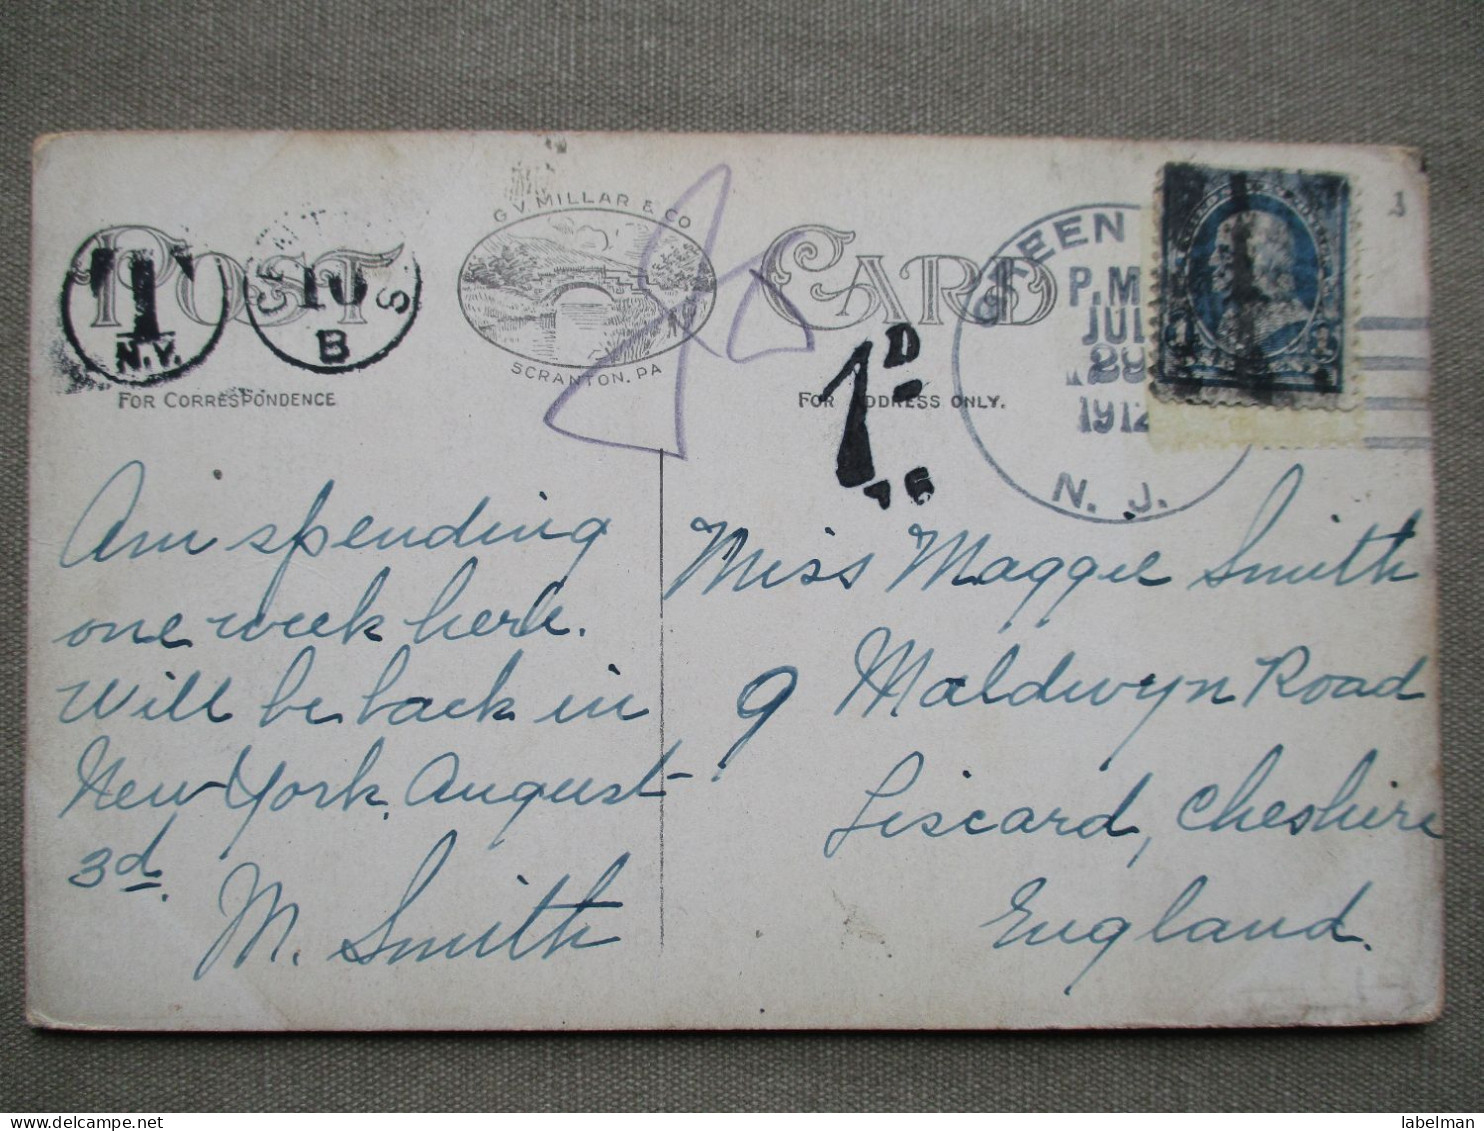 G.V. MILLAR & CO
POST CARD
SCRANTON, PA
FOR CORRESPONDENCE
FOR ADDRESS ONLY.
T
N.Y.
CENTIMES
10
B
1D.
76
GREEN
P.M
JUL
29
1912
N. J.
Am spending
one week here.
Will be back in
New York, August
3d.
M. Smith
Miss Maggie Smith
9 Maldwyn Road
Liscard, Cheshire
England.
labelman
delcampe.net